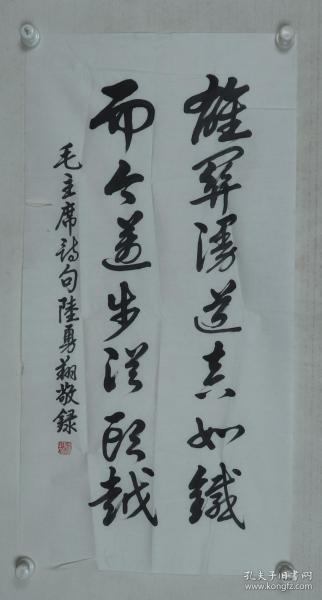 雄関漫道真如鐵
而今邁步從頭越
毛主席詩句陸勇翔敬録
孔夫子旧书网
www.kongfz.com